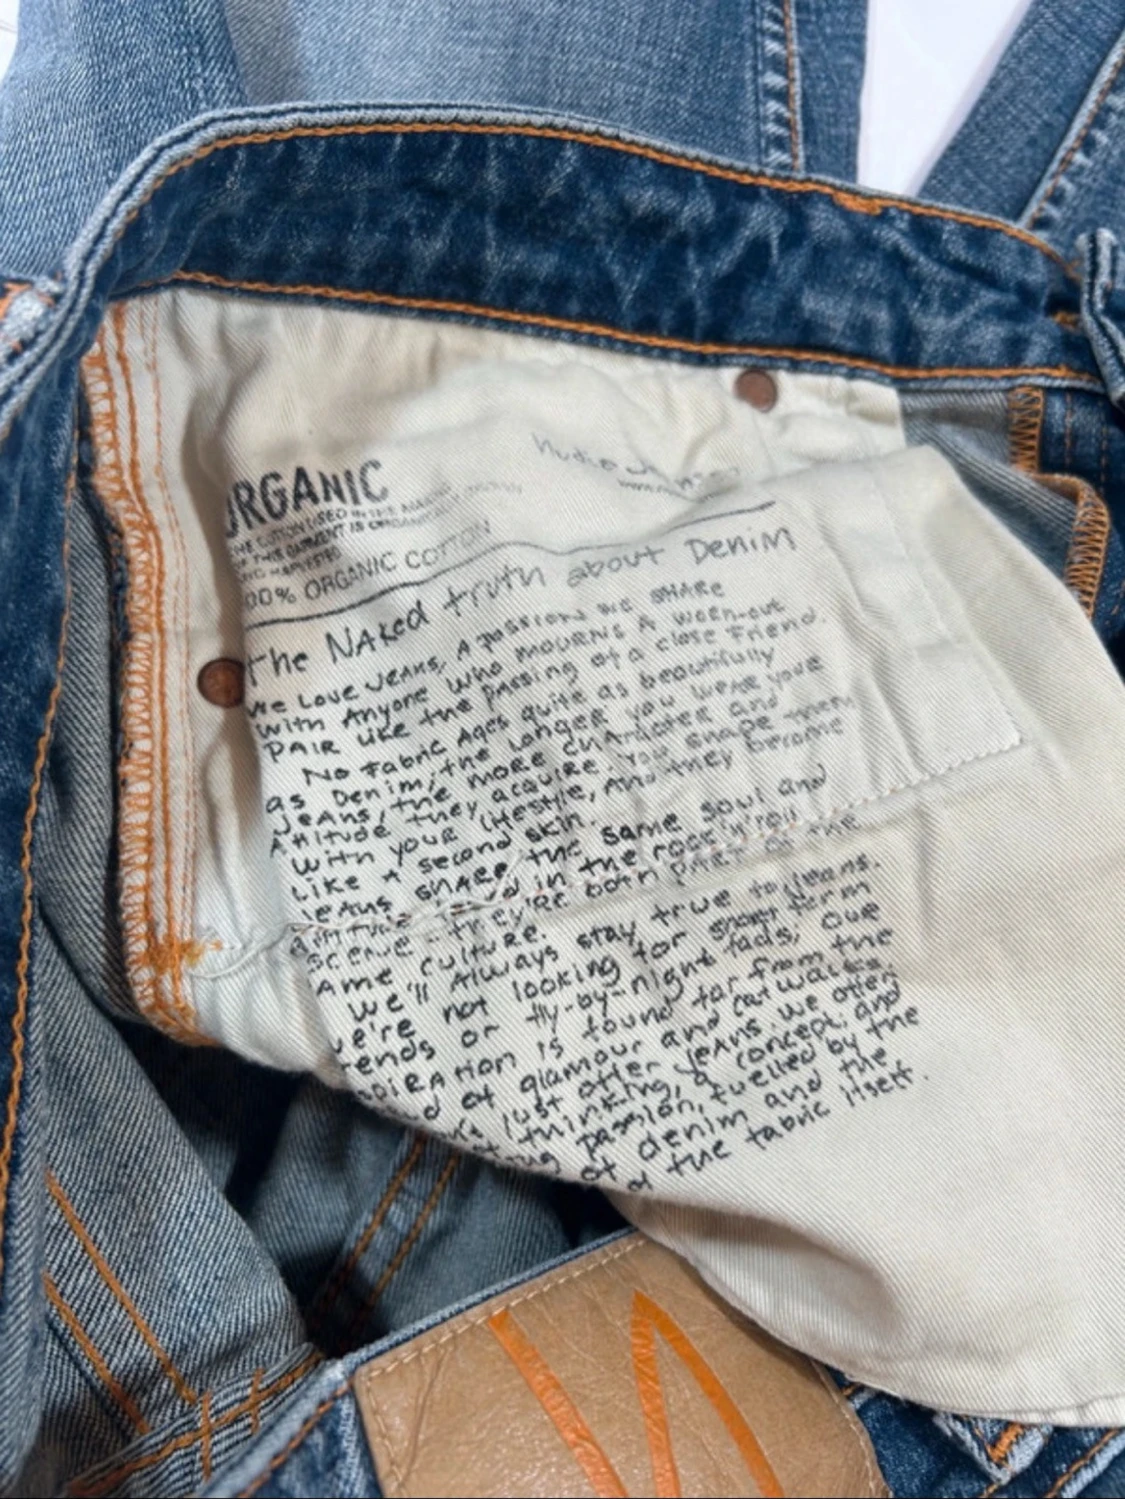 Nudie Jeans
ORGANIC
THE COTTON USED IN THE
OF THIS GARMENT IS
AND HARVESTED
100% ORGANIC COTTON
the NAKed truth about Denim
We Love JeAns, A passion we sHARe
with Anyone who mourns A worn-out
PAiR like the passing of a close Friend.
No Fabric Ages quite as beautifully
as Denim, the Longer you weAR your
jeAns, the more character and
Attitude they acquire. You shape them
with your Lifestyle, And they become
Like A second skin.
jeAns sHARe the same soul and
in the rock'n'roll
scene - they're both PARt of the
sAme culture.
We'll Always stay true to jeans.
we're not looking for short term
trends or fly-by-night fads; our
inspiRAtion is found far from the
of glamour and catwalks.
just offer jeAns. we offer
thinking, a concept, and
passion, fuelled by the
of denim and the
the fabric itself.